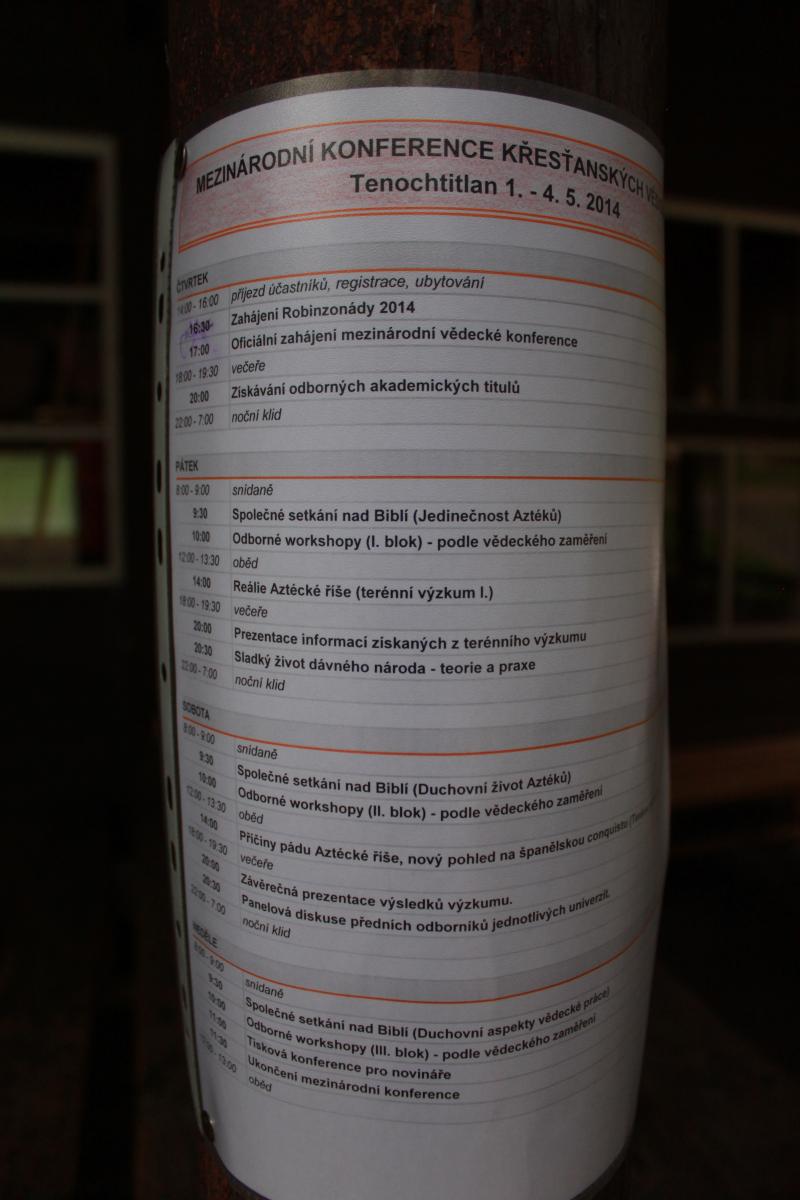 MEZINÁRODNÍ KONFERENCE KŘESŤANSKÝCH
Tenochtitlan 1. - 4. 5. 2014
ČTVRTEK
14:00 - 16:00 příjezd účastníků, registrace, ubytování
16:30 Zahájení Robinzonády 2014
17:00 Oficiální zahájení mezinárodní vědecké konference
18:00 - 19:30 večeře
20:00 Získávání odborných akademických titulů
22:00 - 7:00 noční klid
PÁTEK
8:00 - 9:00 snídaně
9:30 Společné setkání nad Biblí (Jedinečnost Aztéků)
10:00 Odborné workshopy (I. blok) - podle vědeckého zaměření
12:00 - 13:30 oběd
14:00 Reálie Aztécké říše (terénní výzkum I.)
18:00 - 19:30 večeře
20:00 Prezentace informací získaných z terénního výzkumu
20:30 Sladký život dávného národa - teorie a praxe
22:00 - 7:00 noční klid
SOBOTA
8:00 - 9:00 snídaně
9:30 Společné setkání nad Biblí (Duchovní život Aztéků)
10:00 Odborné workshopy (II. blok) - podle vědeckého zaměření
12:00 - 13:30 oběd
14:00 Příčiny pádu Aztécké říše, nový pohled na španělskou conquistu
18:00 - 19:30 večeře
20:00 Závěrečná prezentace výsledků výzkumu.
20:30 Panelová diskuse předních odborníků jednotlivých univerzit.
22:00 - 7:00 noční klid
NEDĚLE
8:00 - 9:00 snídaně
9:30 Společné setkání nad Biblí (Duchovní aspekty vědecké práce)
10:00 Odborné workshopy (III. blok) - podle vědeckého zaměření
11:00 Tisková konference pro novináře
11:30 Ukončení mezinárodní konference
oběd